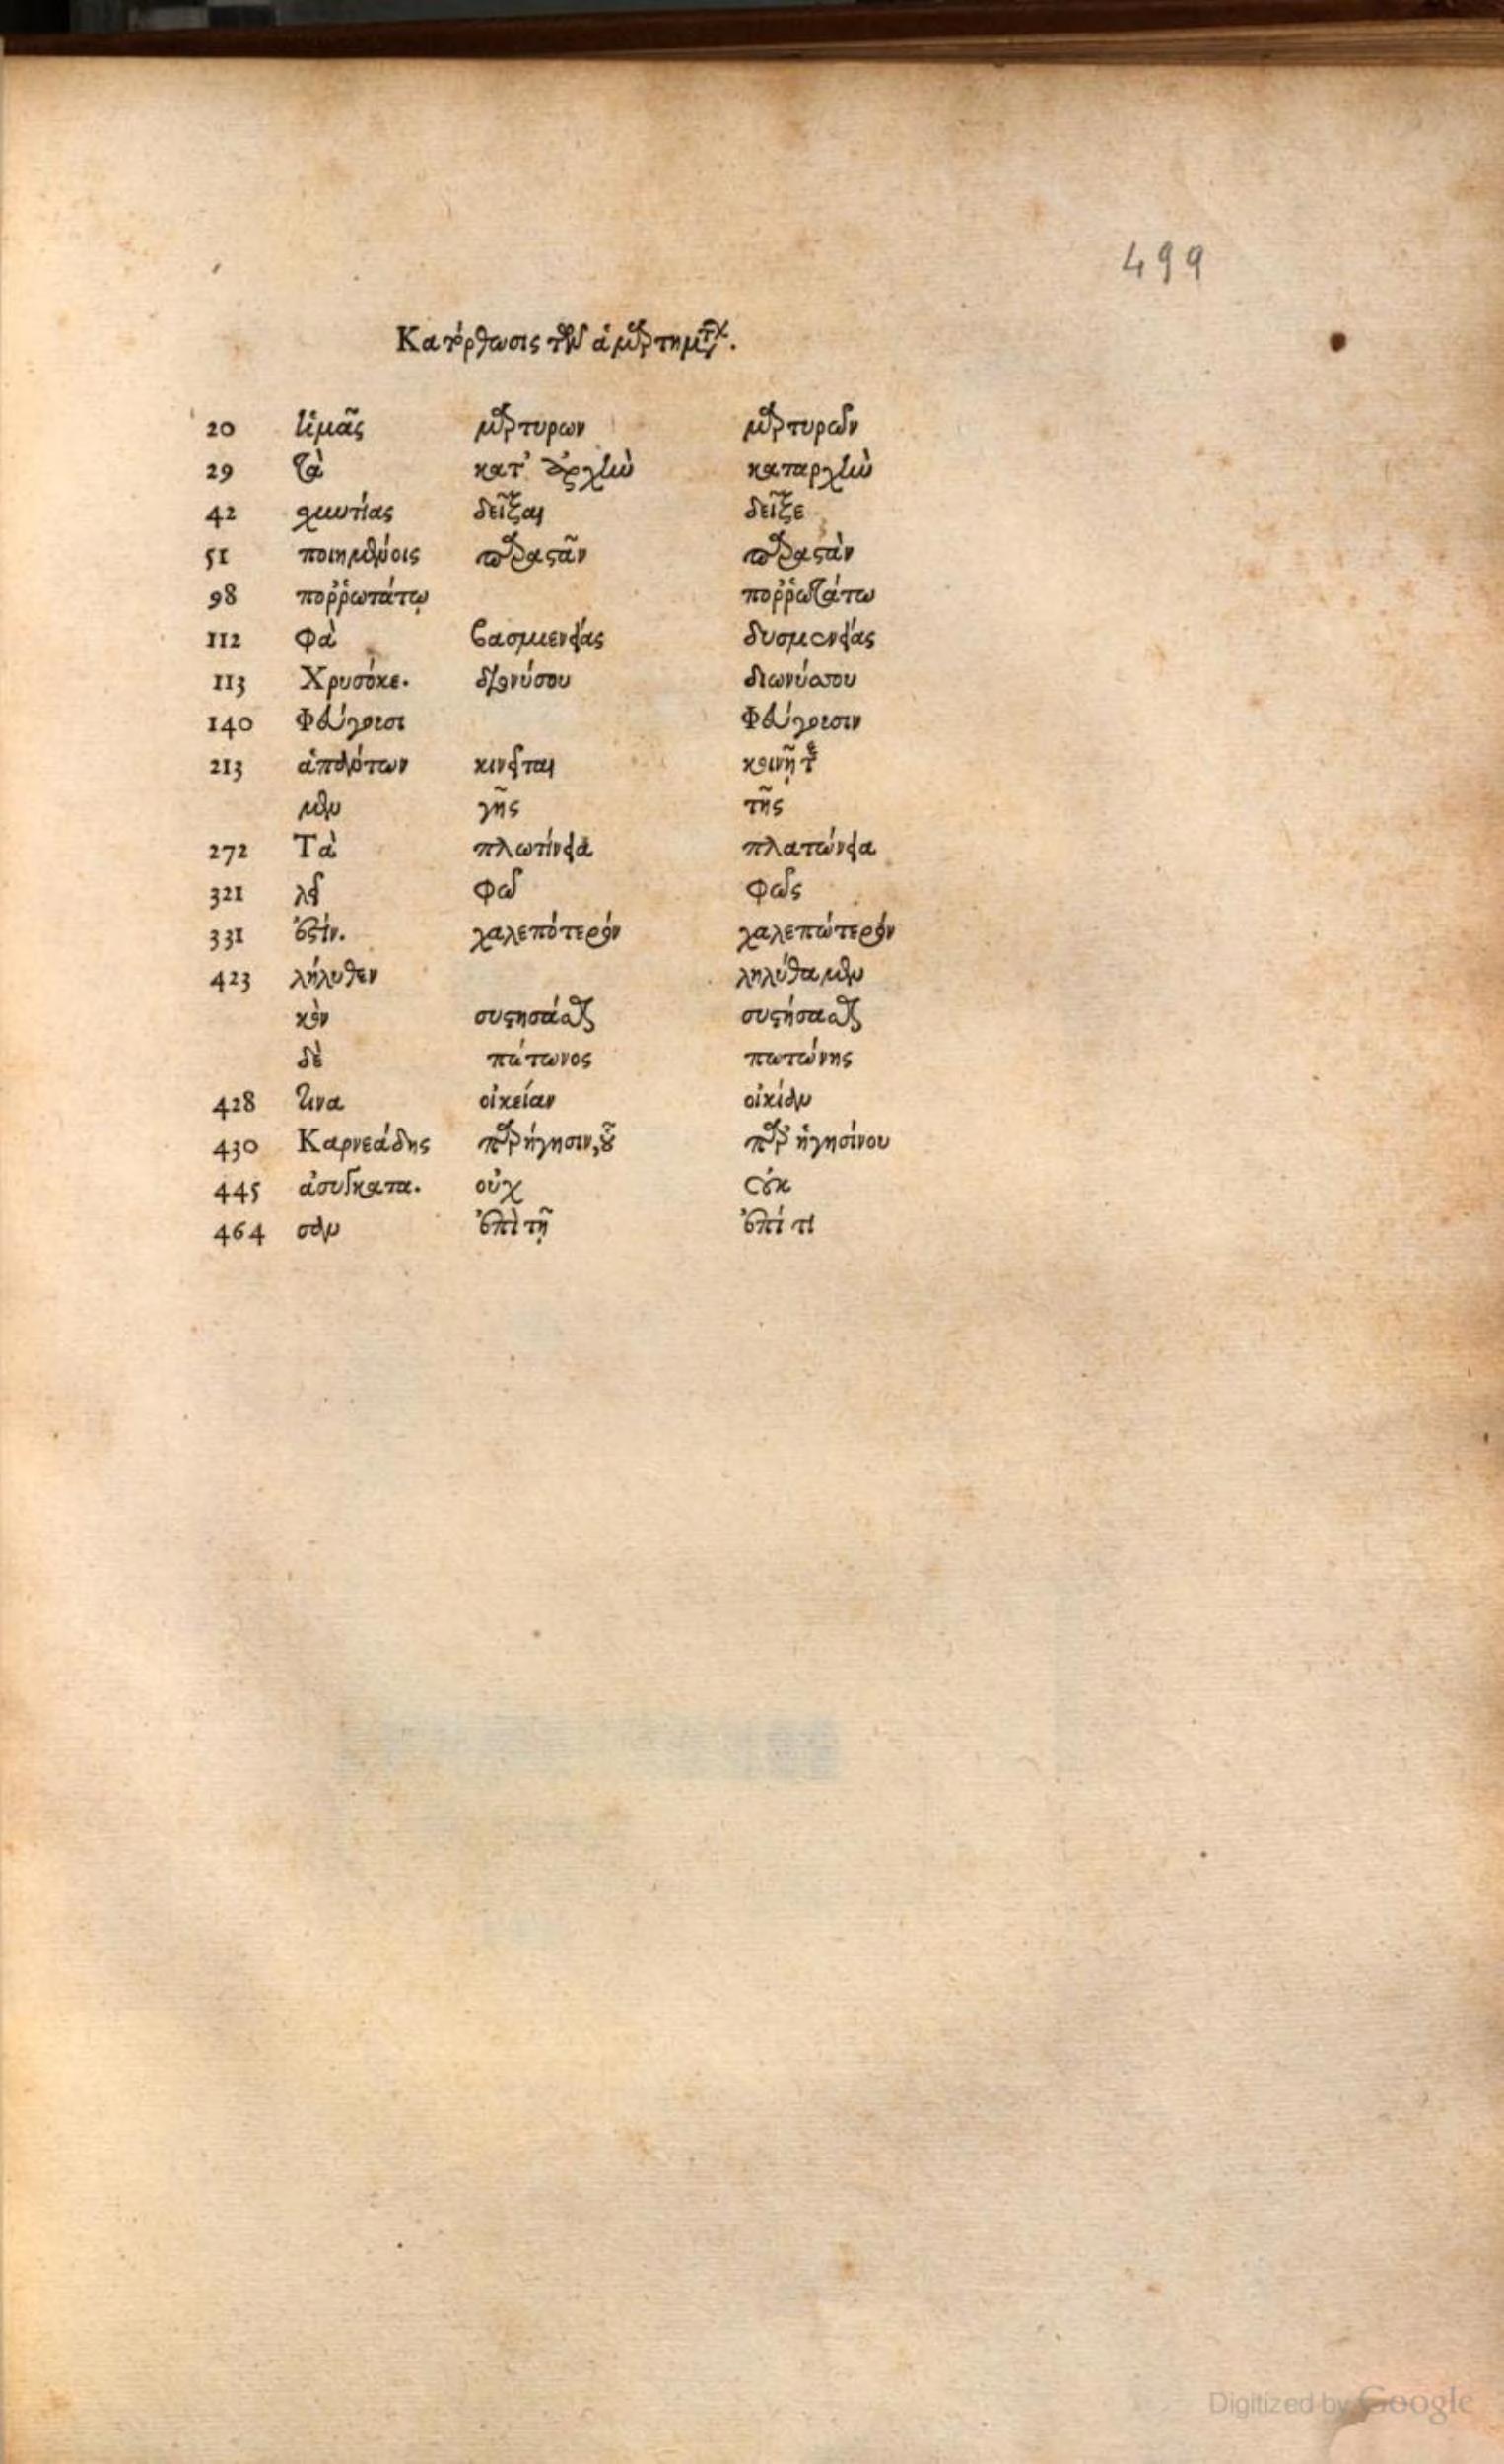 499
Κατόρθωσις τῶν ἁμαρτημάτων.
20 τιμᾶς μαρτυρων μαρτυρῶν
29 τὰ κατ' ἀρχὴν καταρχὴν
42 γωνίας δεῖξαι δεῖξε
51 ποιημένοις παραστᾶν παραστὰν
98 ποῤῥωτάτῳ ποῤῥωτάτω
112 Φὰ βασμενείας δυσμενείας
113 Χρυσόκε. διονύσου διωνύσου
140 Φαύγρεσι Φαύγρεσιν
213 κινεῖται κρινῆται
μὲν γῆς τῆς
272 Τὰ πλωτίνεια πλατώνεια
321 λεῖ φῶ φῶς
331 ἐστίν. χαλεπότερόν χαλεπώτερόν
423 λήλυθεν ληλύθαμεν
κὸν συστησάας συστήσαας
δὲ πάτωνος πωτώνης
428 τινα οἰκείαν οἰκίαν
430 Καρνεάδης παρήγησιν,οῦ παρ' ἡγησίνου
445 ἀσυγκατα. οὐχ οὐκ
464 σαν ἐπὶ τῇ ἐπί τι
Digitized by Google